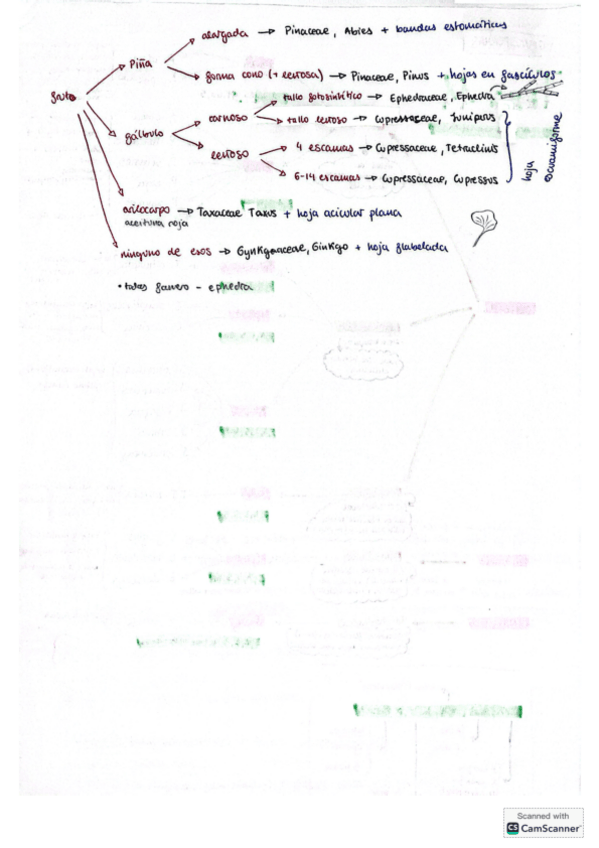 alargada → Pinaceae, Abies + bandas estomáticas
Piña
forma cono (+ leñosa) → Pinaceae, Pinus + hojas en fascículos
fruto
tallo fotosintético → Ephedraceae, Ephedra
carnoso
tallo leñoso → Cupressaceae, Juniperus
gálbulo
4 escamas → Cupressaceae, Tetraclinis
leñoso
6-14 escamas → Cupressaceae, Cupressus
hoja escuamiforme
arilocarpo → Taxaceae Taxus + hoja acicular plana
aceituna roja
ninguno de esos → Gynkgoaceae, Ginkgo + hoja flabelada
• todas - ephedra
Scanned with
CS CamScanner